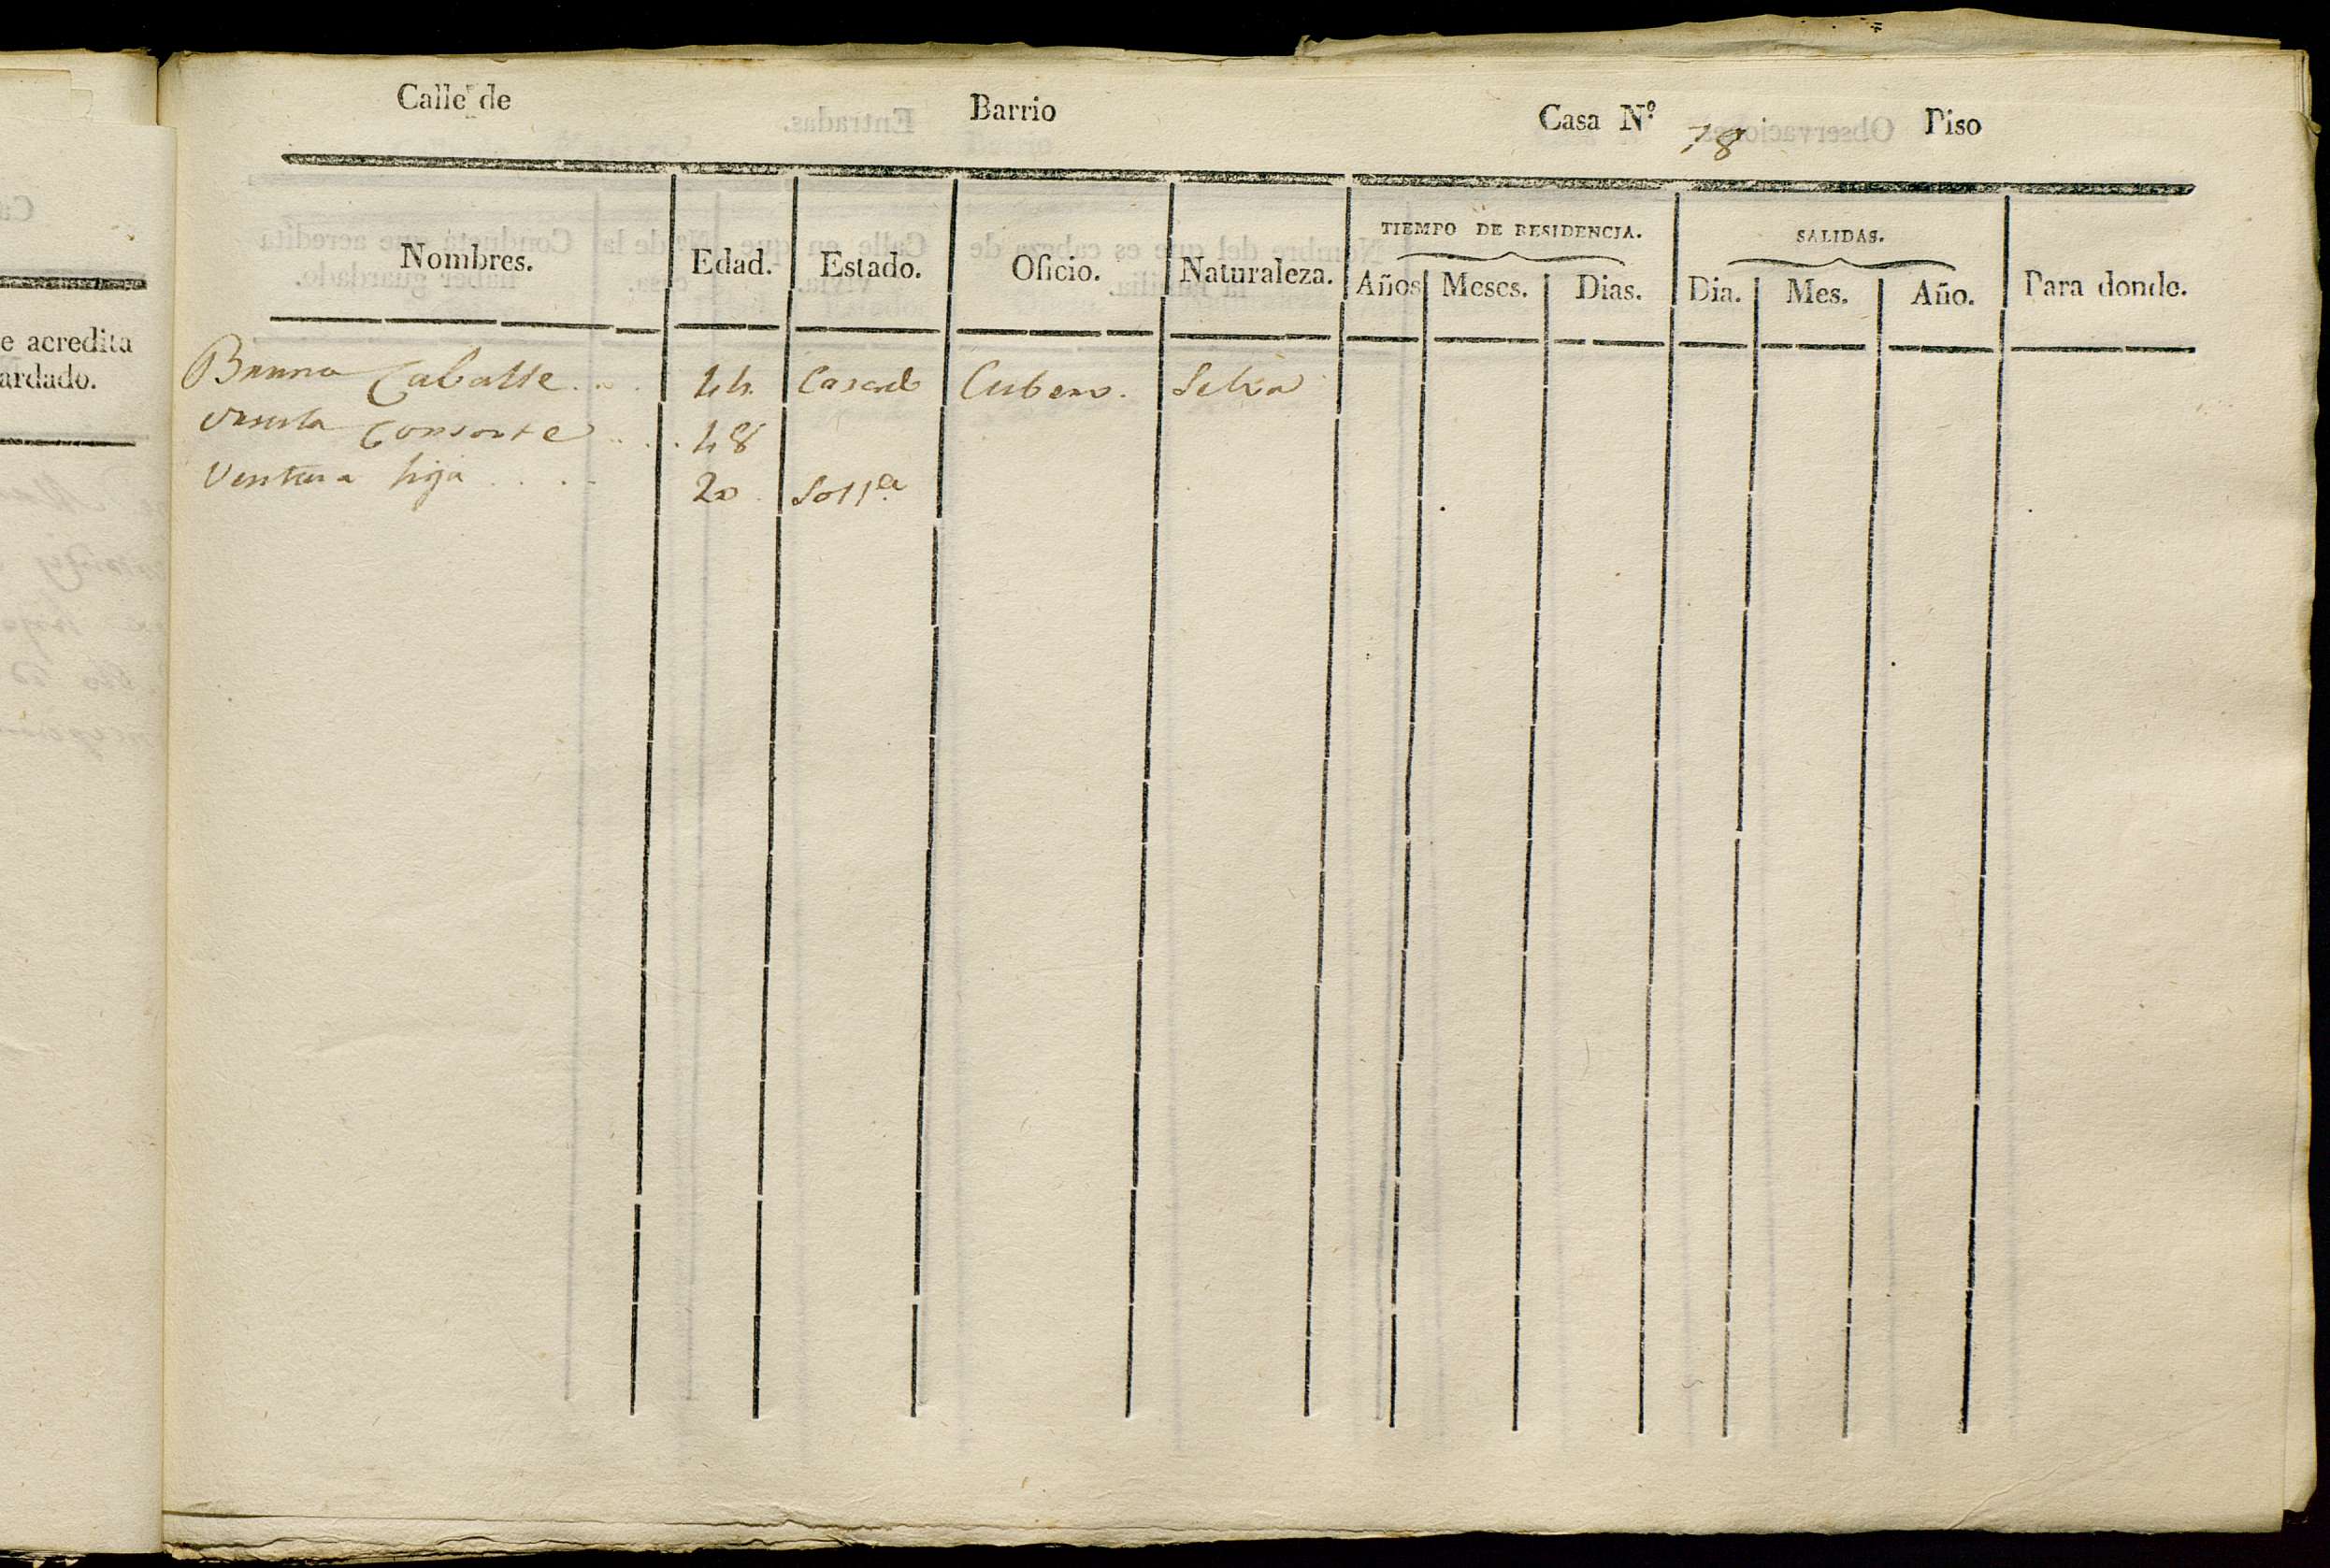 Calle de Barrio Casa N.º 78 Piso
TIEMPO DE RESIDENCIA. SALIDAS.
Nombres. Edad. Estado. Oficio. Naturaleza. Años Meses. Dias. Dia. Mes. Año. Para donde.
e acredita
ardado.
Caballe 44 Casad Cubero. Selva
Ursula Consorte 48
Ventura hija 20 Solt.a